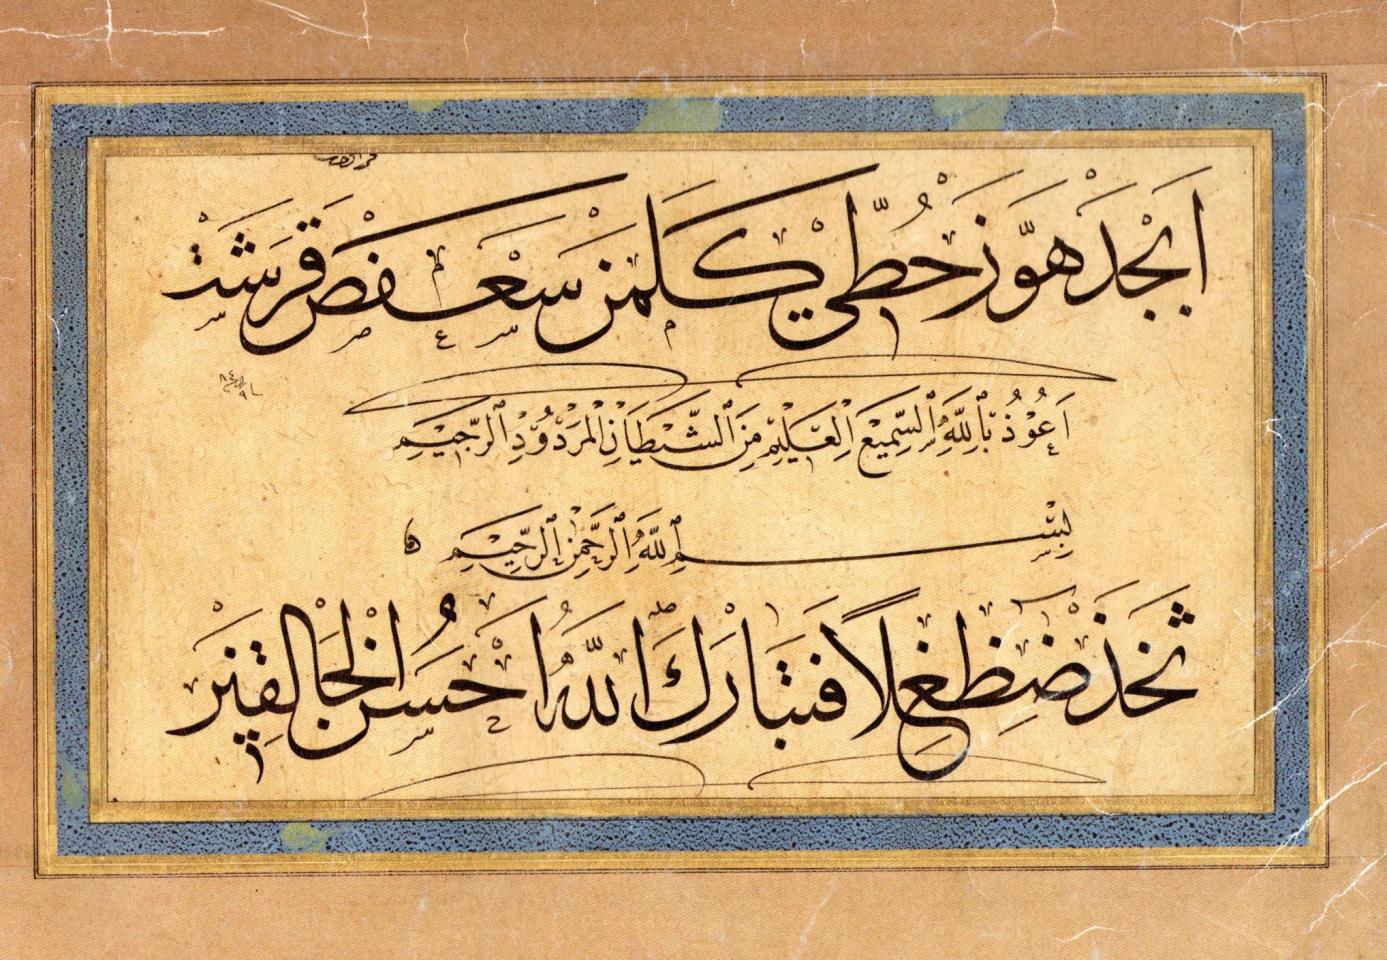 اَبْجَدْ هَوَّزْ حُطِّي كَلَمَنْ سَعَفَصْ قَرَشَتْ
اَعُوْذُ بِاللّٰهِ السَّمِيْعِ الْعَلِيْمِ مِنَ الشَّيْطَانِ الْمَرْدُوْدِ الرَّجِيْمِ
بِسْمِ اللّٰهِ الرَّحْمٰنِ الرَّحِيْمِ
ثَخَذْ ضَظِغْلًا فَتَبَارَكَ اللّٰهُ اَحْسَنُ الْخَالِقِيْنَ